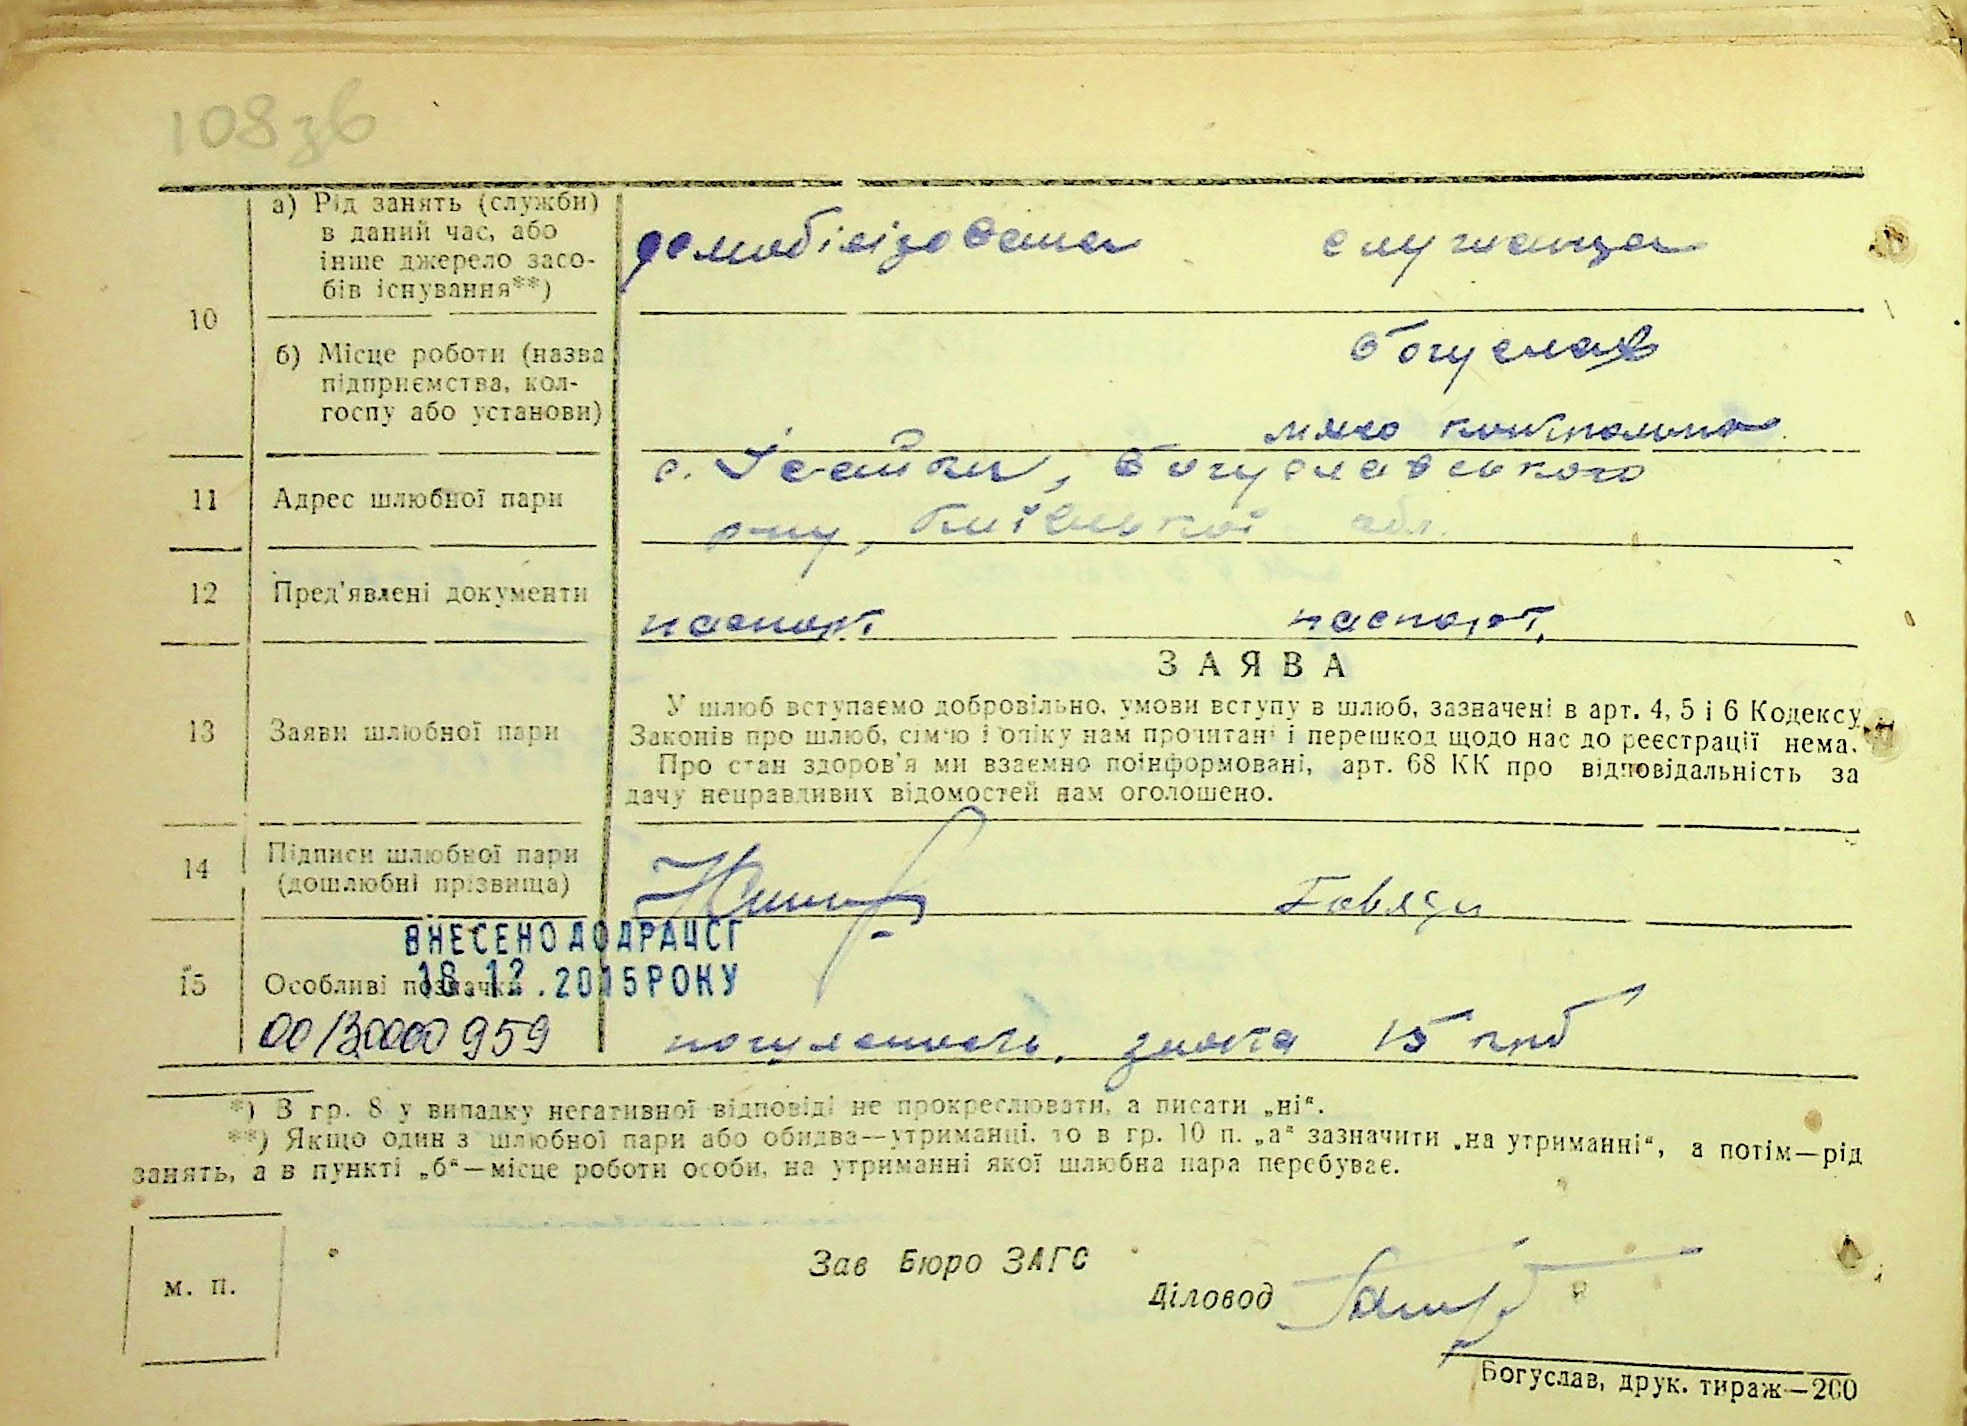 108 зв
а) Рід занять (служби)
в даний час, або
інше джерело засо-
бів існування**)
демобілізована служанца
10
б) Місце роботи (назва
підприємства, кол-
госпу або установи)
Богуслав
мясо контрольна
11 Адрес шлюбної пари
с. Ісайки, Богуславського
р-ну, Київської обл.
12 Пред'явлені документи паспорт паспорт,
ЗАЯВА
13 Заяви шлюбної пари
У шлюб вступаємо добровільно, умови вступу в шлюб, зазначені в арт. 4, 5 і 6 Кодексу
Законів про шлюб, сім'ю і опіку нам прочитані і перешкод щодо нас до реєстрації нема.
Про стан здоров'я ми взаємно поінформовані, арт. 68 КК про відповідальність за
дачу неправдивих відомостей нам оголошено.
14 Підписи шлюбної пари
(дошлюбні прізвища)
ВНЕСЕНО ДО ДРАЦСГ
18.12.2015 РОКУ
15 Особливі позначки
00130000959
15 крб
*) В гр. 8 у випадку негативної відповіді не прокреслювати, а писати „ні“.
**) Якщо один з шлюбної пари або обидва—утриманці, то в гр. 10 п. „а“ зазначити „на утриманні“, а потім—рід
занять, а в пункті „б“—місце роботи особи, на утриманні якої шлюбна пара перебуває.
м. п.
Зав Бюро ЗАГС
Діловод
Богуслав, друк. тираж—200